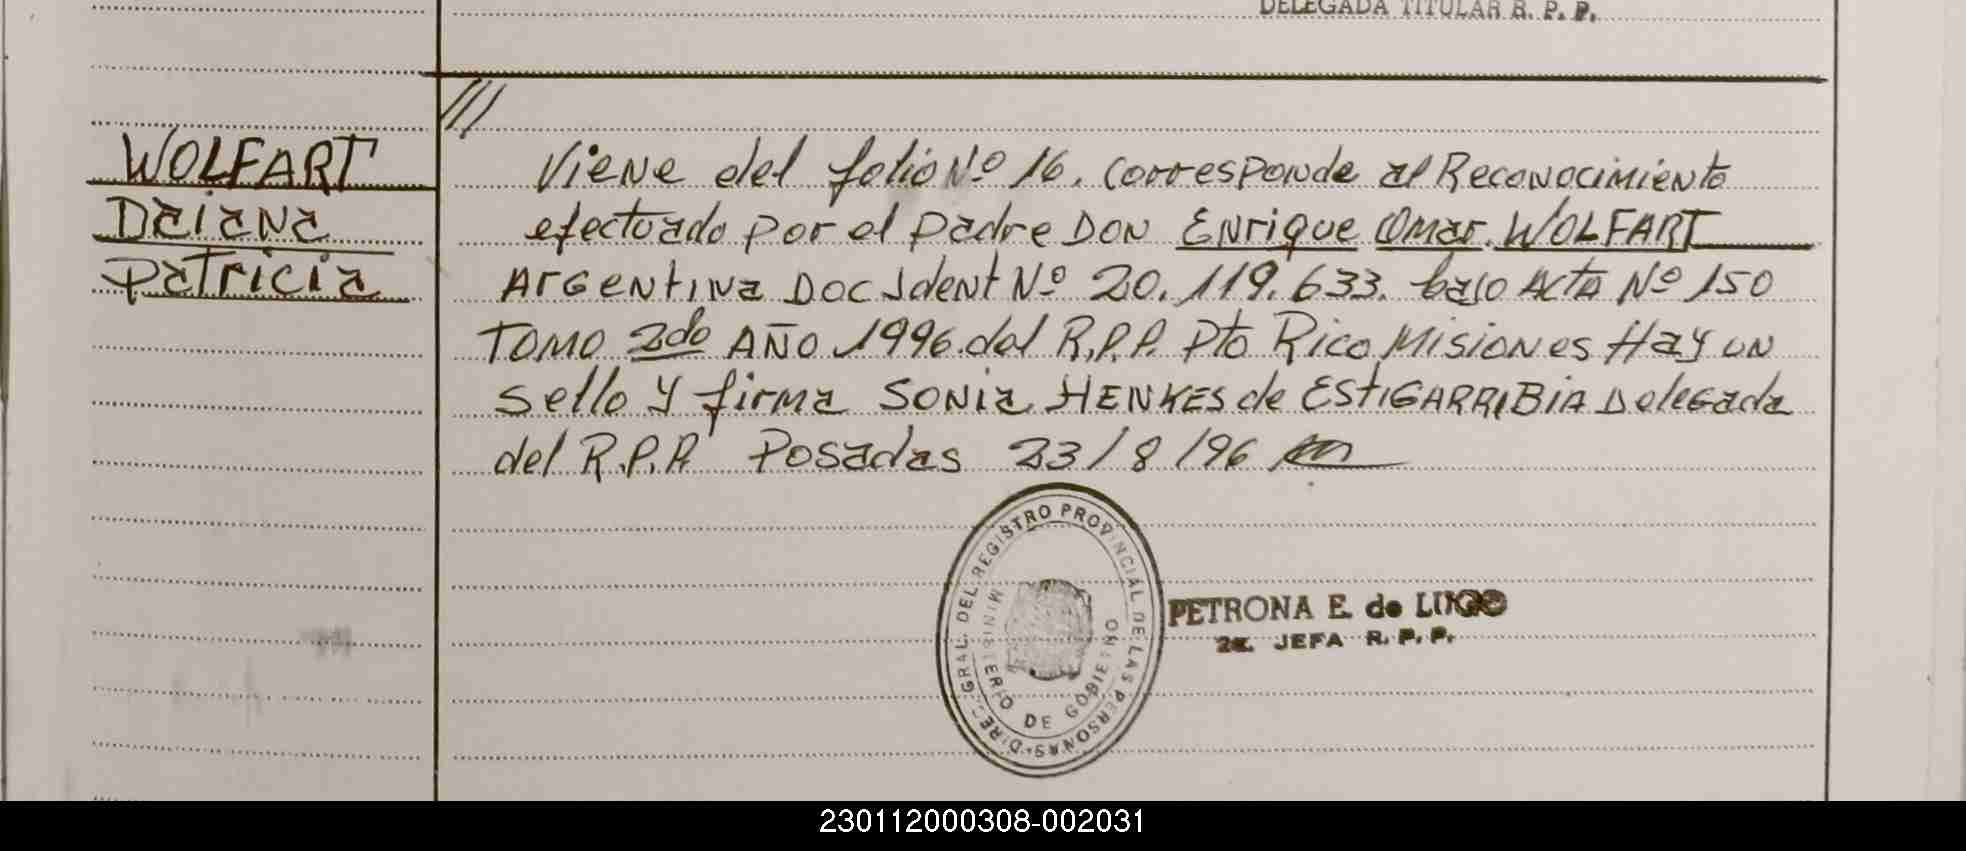 DELEGADA TITULAR R. P. P.
WOLFART
Daiana
Patricia
///
Viene del folio Nº 16. Corresponde al Reconocimiento
efectuado por el padre DON Enrique Omar WOLFART
Argentina Doc Ident Nº 20.119.633. bajo Acta Nº 150
TOMO 2do AÑO 1996 del R.P.P. Pto Rico Misiones Hay un
sello y firma SONia HENKES de ESTIGARRIBIA Delegada
del R.P.P. Posadas 23/8/96
DIREC. GRAL. DEL REGISTRO PROVINCIAL DE LAS PERSONAS
MINISTERIO DE GOBIERNO
PETRONA E. de LUGO
2a. JEFA R. P. P.
230112000308-002031